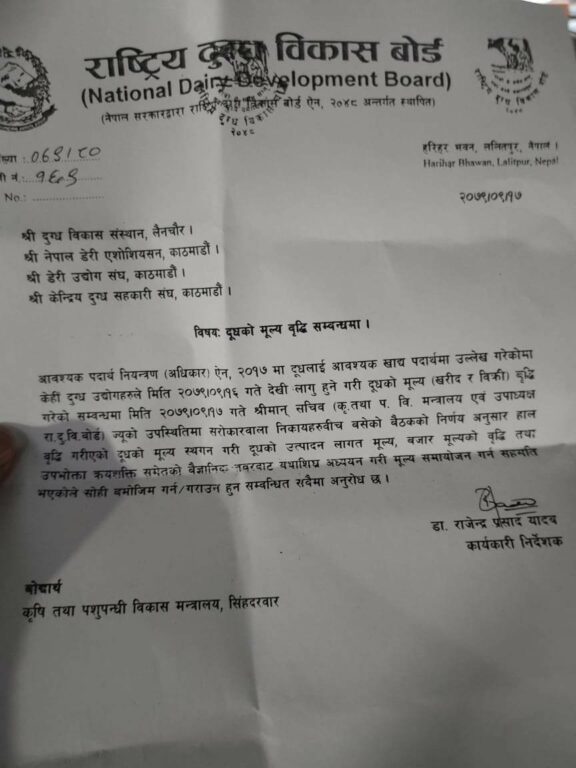 राष्ट्रिय दुग्ध विकास बोर्ड
(National Dairy Development Board)
(नेपाल सरकारद्वारा राष्ट्रिय दुग्ध विकास बोर्ड ऐन, २०४८ अन्तर्गत स्थापित)
हरिहर भवन, ललितपुर, नेपाल ।
Harihar Bhawan, Lalitpur, Nepal
ख्या :
नं.
No.:
२०७९।०९।१७
श्री दुग्ध विकास संस्थान, लैनचौर ।
श्री नेपाल डेरी एशोशियसन, काठमाडौं ।
श्री डेरी उद्योग संघ, काठमाडौं ।
श्री केन्द्रिय दुग्ध सहकारी संघ, काठमाडौं ।
विषय: दूधको मूल्य वृद्धि सम्बन्धमा ।
आवश्यक पदार्थ नियन्त्रण (अधिकार) ऐन, २०१७ मा दूधलाई आवश्यक खाद्य पदार्थमा उल्लेख गरेकोमा
केहीं दुग्ध उद्योगहरुले मिति २०७९।०९।१६ गते देखी लागु हुने गरी दूधको मूल्य (खरीद र विक्री) वृद्धि
गरेको सम्बन्धमा मिति २०७९।०९।१७ गते श्रीमान् सचिव (कृ.तथा प. वि. मन्त्रालय एवं उपाध्यक्ष
रा.दु.वि.बोर्ड) ज्यूको उपस्थितिमा सरोकारवाला निकायहरुवीच बसेको बैठकको निर्णय अनुसार हाल
वृद्धि गरीएको दूधको मूल्य स्थगन गरी दूधको उत्पादन लागत मूल्य, बजार मूल्यको वृद्धि तथा
उपभोक्ता क्रयशक्ति समेतको बैज्ञानिक यथाशिघ्र अध्ययन गरी मूल्य समायोजन गर्न सहमति
भएकोले सोही बमोजिम गर्न/गराउन हुन सम्बन्धित सवैमा अनुरोध छ ।
डा. राजेन्द्र प्रसाद यादव
कार्यकारी निर्देशक
बोधार्थ
कृषि तथा पशुपन्छी विकास मन्त्रालय, सिंहदरवार